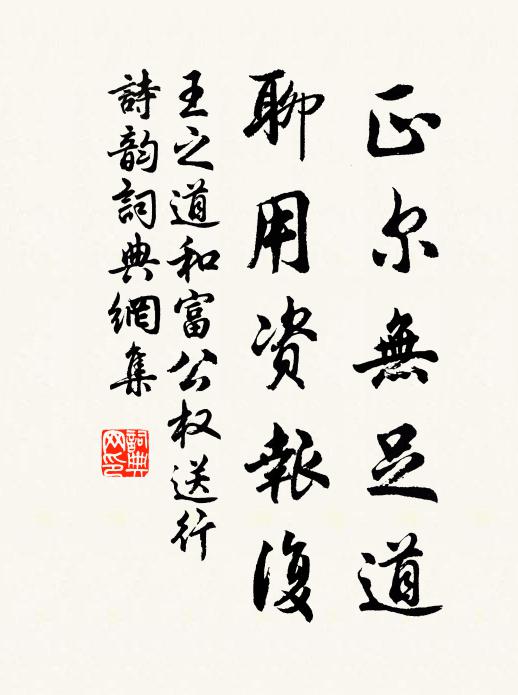 正尔無足道
聊用资報復
王之道和富公权送行
詩韵詞典網集
詞典网印